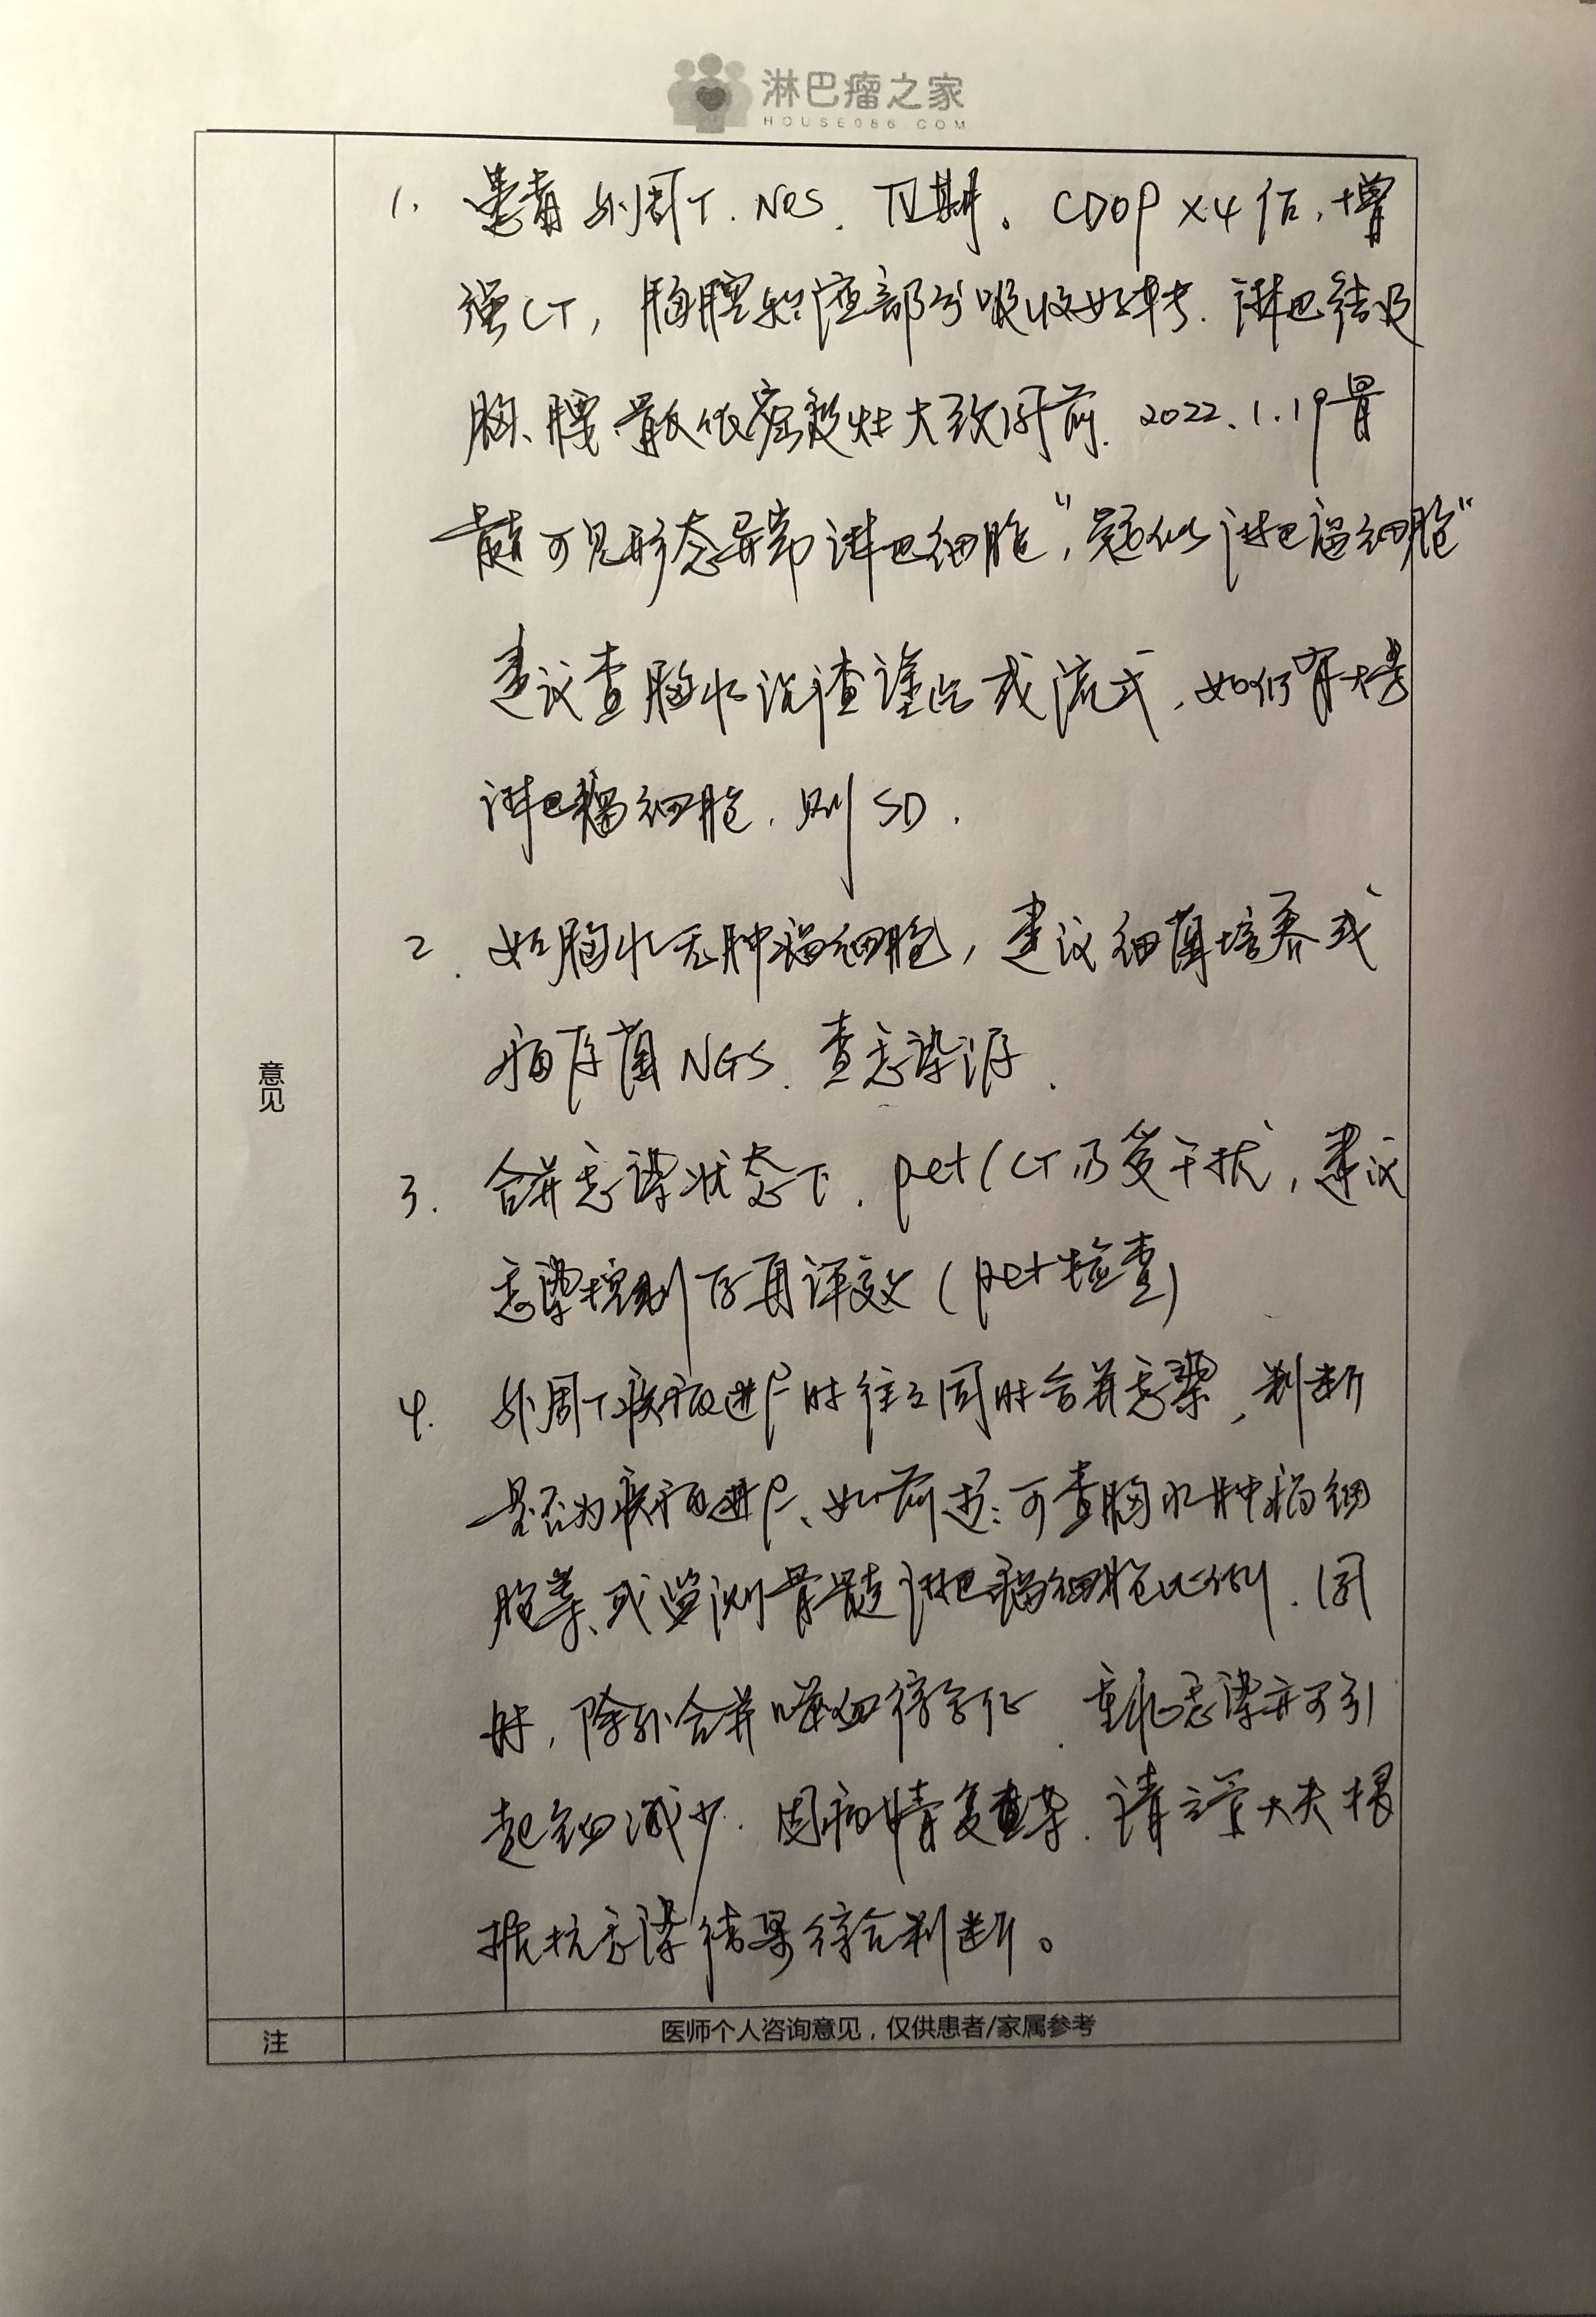 淋巴瘤之家
HOUSE086.COM
意见
1. 患者外周T. NOS. IV期。CDOP×4后,增
强CT,胸腔积液部分吸收好转.淋巴结及
胸、腰 低密度灶大致同前. 2022.1.19骨
髓可见形态异常淋巴细胞,"疑似淋巴瘤细胞"
建议查胸水沉渣 或流式,如仍有大量
淋巴瘤细胞.则SD.
2. 如胸水无肿瘤细胞,建议细菌培养或
病原菌NGS.查感染源.
3. 合并感染状态下.pet/CT仍受干扰,建议
感染控制后再评效(pet检查)
4. 外周T疾病进展时往往同时合并感染,判断
是否为疾病进展、如前述:可查胸水肿瘤细
胞等、或监测骨髓淋巴瘤细胞比例.同
时,除外合并噬血综合征.重症感染亦可引
起三细减少.因病情复杂.请主管大夫根
据抗感染结果综合判断。
注
医师个人咨询意见,仅供患者/家属参考